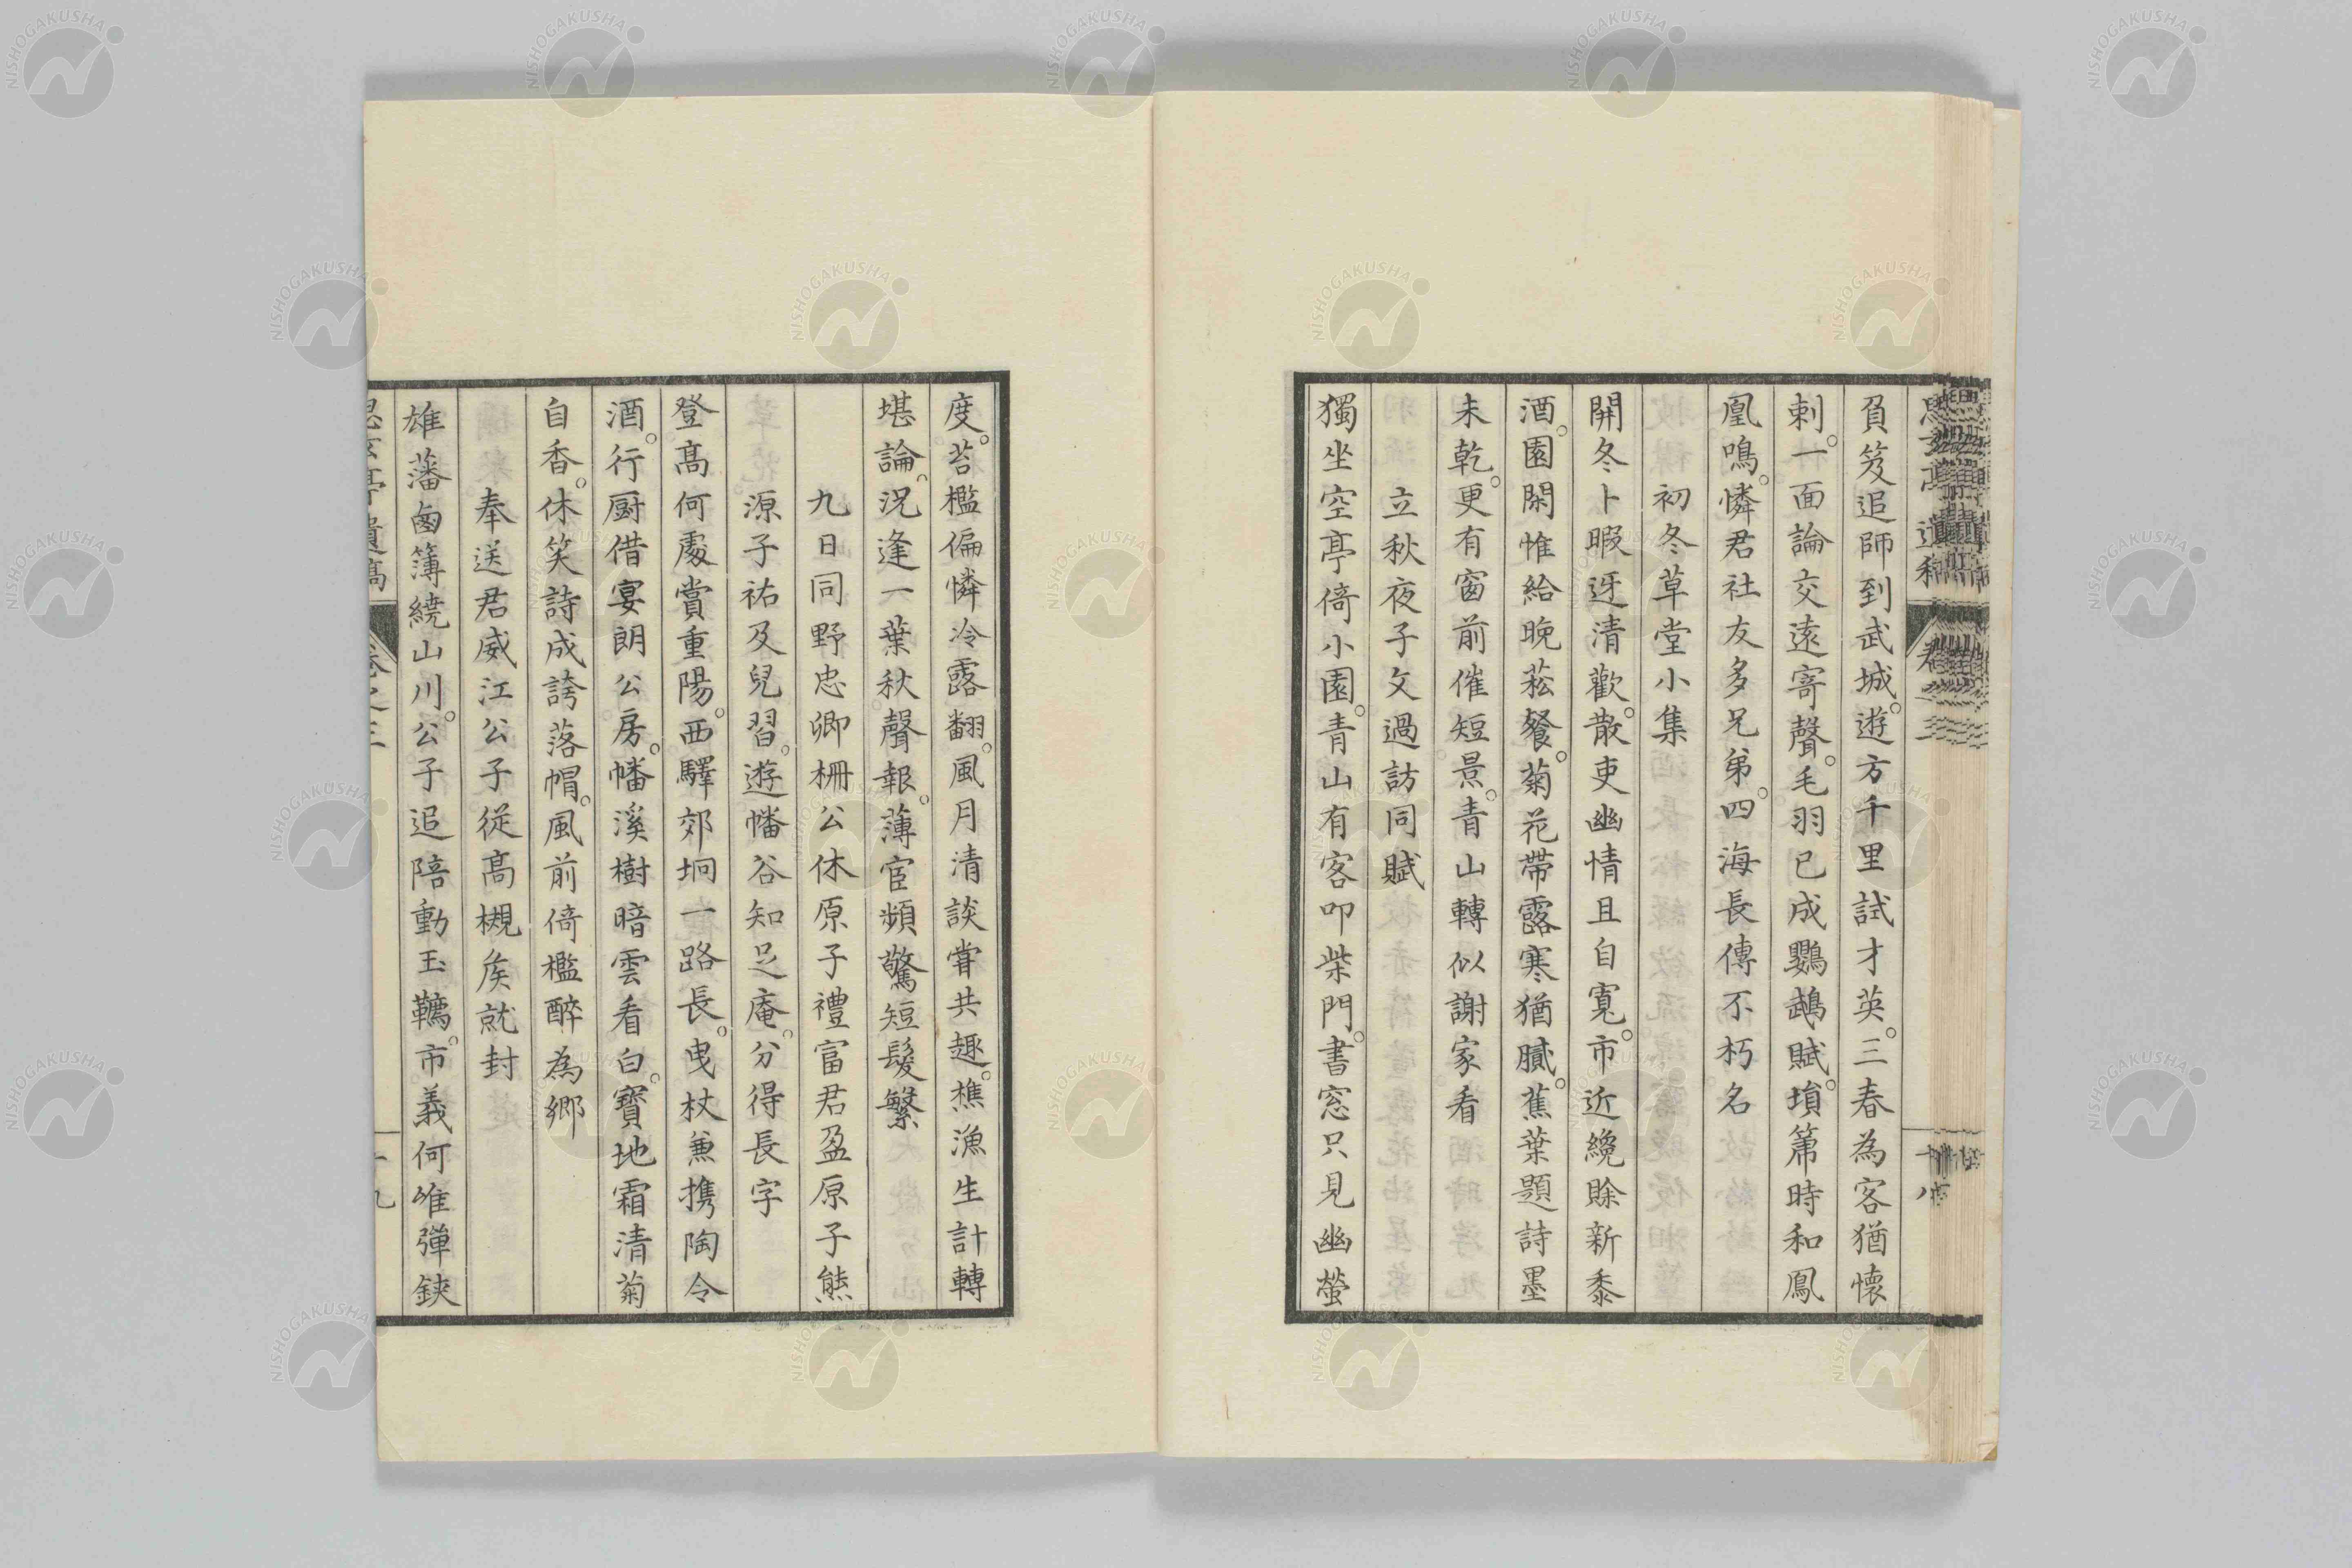 負笈追師到武城。遊方千里試才英。三春為客猶懷
刺。一面論交遠寄聲。毛羽已成鸚鵡賦。塤箎時和鳳
凰鳴。憐君社友多兄弟。四海長傳不朽名
初冬草堂小集
開冬卜暇迓清歡。散吏幽情且自寬。市近纔賒新黍
酒。園閑惟給晚菘餐。菊花帶露寒猶膩。蕉葉題詩墨
未乾。更有窗前催短景。青山轉似謝家看
立秋夜子文過訪同賦
獨坐空亭倚小園。青山有客叩柴門。書窓只見幽螢
度。苔檻偏憐冷露翻。風月清談甞共趣。樵漁生計轉
堪論。況逢一葉秋聲報。薄宦頻驚短髮繁
九日同野忠卿柵公休原子禮富君盈原子熊
源子祐及兒習。遊幡谷知足庵。分得長字
登高何處賞重陽。西驛郊坰一路長。曳杖兼携陶令
酒。行厨借宴朗公房。幡溪樹暗雲看白。寶地霜清菊
自香。休笑詩成誇落帽。風前倚檻醉為鄉
奉送君威江公子從高槻矦就封
雄藩鹵簿繞山川。公子追陪動玉韉。市義何唯彈鋏
亭遺稿 卷之三 十九
NISHOGAKUSHA